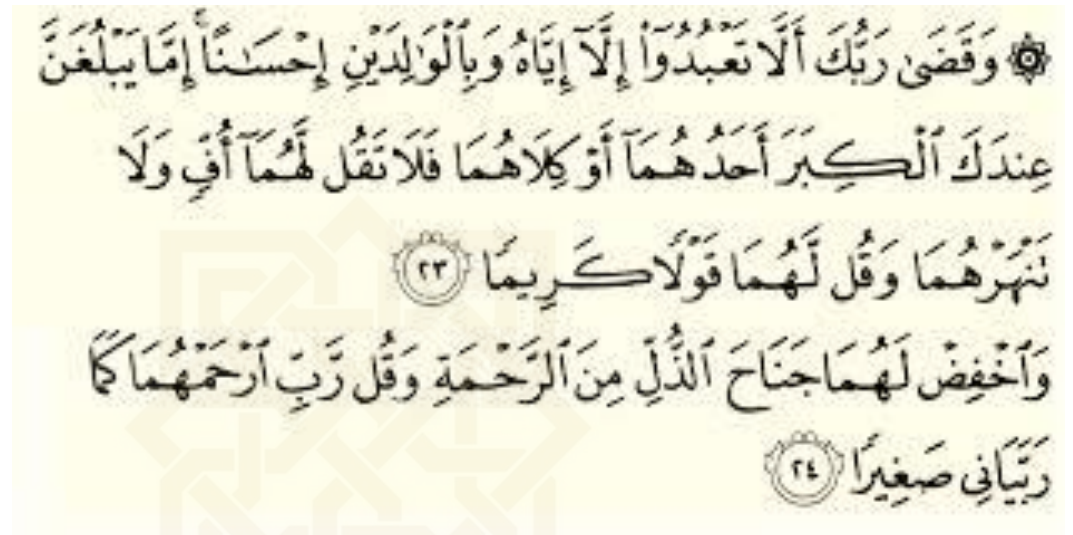 ۞ وَقَضَىٰ رَبُّكَ أَلَّا تَعْبُدُوٓا۟ إِلَّآ إِيَّاهُ وَبِٱلْوَٰلِدَيْنِ إِحْسَـٰنًا ۚ إِمَّا يَبْلُغَنَّ
عِندَكَ ٱلْكِبَرَ أَحَدُهُمَآ أَوْ كِلَاهُمَا فَلَا تَقُل لَّهُمَآ أُفٍّ وَلَا
تَنْهَرْهُمَا وَقُل لَّهُمَا قَوْلًا كَرِيمًا ٢٣
وَٱخْفِضْ لَهُمَا جَنَاحَ ٱلذُّلِّ مِنَ ٱلرَّحْمَةِ وَقُل رَّبِّ ٱرْحَمْهُمَا كَمَا
رَبَّيَانِى صَغِيرًا ٢٤